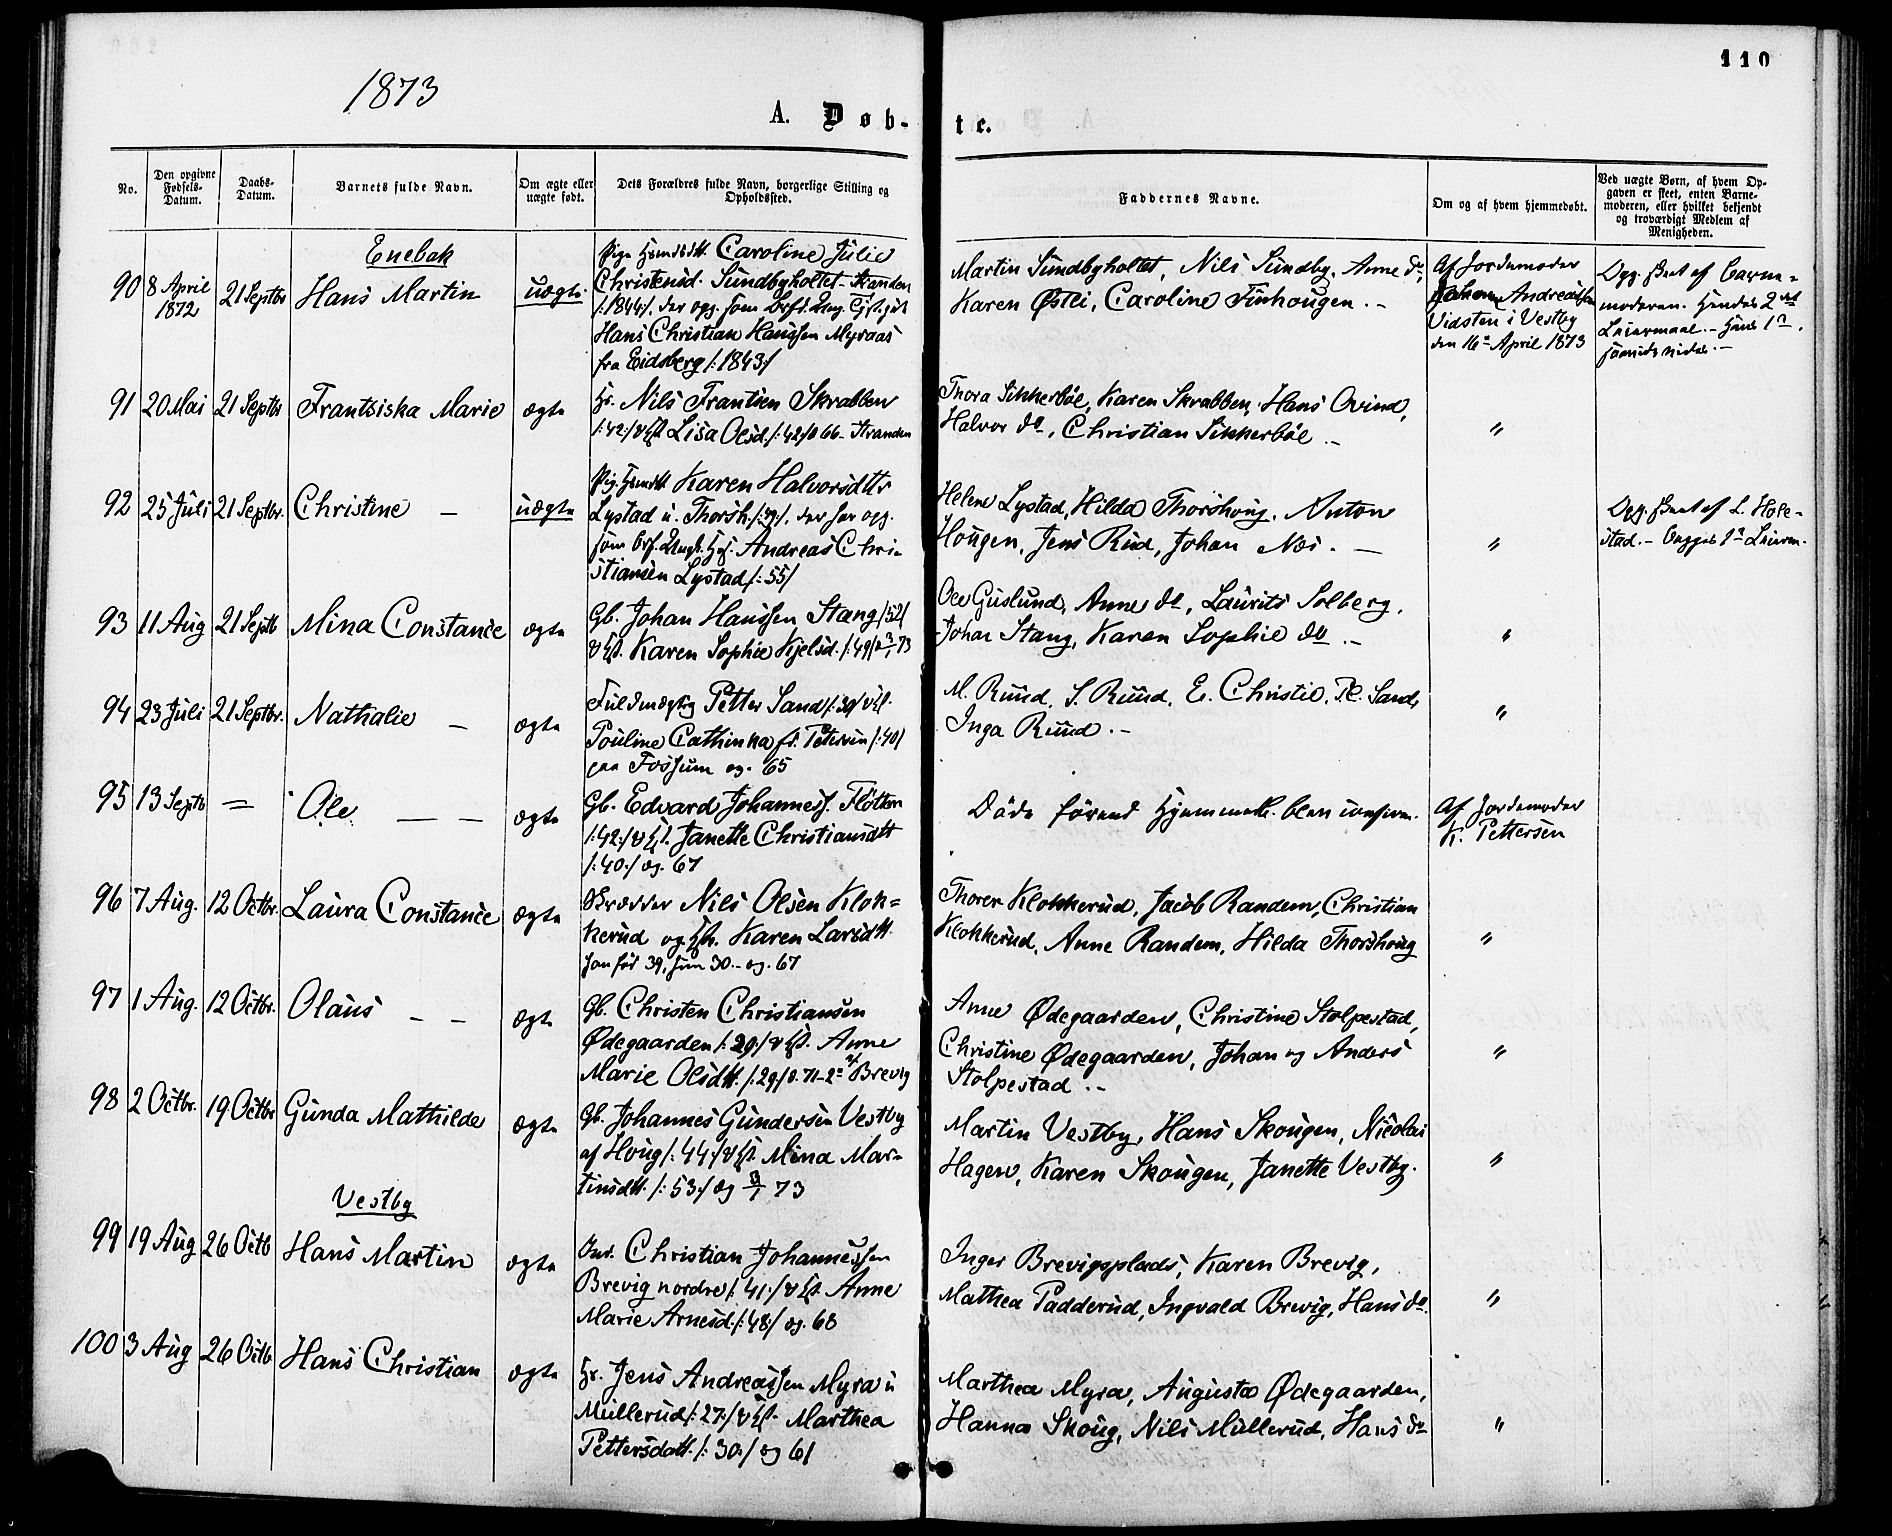 110
1873
A. Døb-
te.
No.
Den opgivne
Fødsels-
Datum.
Daabs-
Datum.
Barnets fulde Navn.
Om ægte eller
uægte født.
Dets Forældres fulde Navn, borgerlige Stilling og
Opholdssted.
Faddernes Navne.
Om og af hvem hjemmedøbt.
Ved uægte Børn, af hvem Op-
gaven er skeet, enten Barne-
moderen, eller hvilket bekjendt
og troværdigt Medlem af
Menigheden.
Enebak
90 8 April
1872
21 Septbr
Hans Martin
uægte
Caroline Julie
Christensd. Sundbyholtet - Stranden
/:1844:/. der opg. som
Hans Christian Hanssen Myraas
fra Eidsberg /:1843/
Martin Sundbyholtet, Nils Sundby. Anne do,
Karen Østli, Caroline Finhougen. -
Af Jordemoder
Andreassen
Vidsten i Vestby
den 16de April 1873
Opg. skeet af Barne-
moderen. Hendes 2det
Leiermaal. - Hans 1ste.
91 20 Mai 21 Septbr Frantsiska Marie ægte
Nils Frantsen Skrabben
/:42:/ & Hst. Lisa Olsd. /:42/ 66 - Stranden
Thora Sikkerbøl, Karen Skrabben, Hans Ovind,
Halvor do, Christian Sikkerbøl. -
"
92 25 Juli 21 Septbr. Christine - uægte
Karen Halvorsdttr
Lystad u. Thorsh. der har opg.
som Andreas Chri-
stiansen Lystad /:55/
Helene Lystad, Hilda Thorshoug, Anton
Hougen, Jens Rud, Johan Næs. -
"
Opg. skeet af L. Hole-
stad. - Begges 1ste Leierm.
93 11 Aug 21 Septb Mina Constance ægte
Gb. Johan Hanssen Stang /52/
& Hst. Karen Sophie Kjelsd. /:49/ 73
Ole Guslund, Anne do, Laurits Solberg,
Johan Stang, Karen Sophie do. -
"
94 23 Juli 21 Septbr. Nathalie - ægte
Fuldmægtig Petter Sand /:39/ & Hst.
Pouline Cathinka f. Petersen /:40/
paa Fossum og. 65
M. Ruud, S. Ruud, E. Christie, P. Sand,
Inga Ruud. -
"
95 13 Septb = Ole - - ægte
Gb. Edvard Johanness. Flötten
/:42:/ & Hst. Janette Christiansdtt
/:40:/ og. 67
Døde førend Hjemmed. blev
Af Jordemoder
K. Pettersen
96 7 Aug. 12 Octbr. Laura Constance ægte
Skrædder Nils Olsen Klok=
kerud og Hst. Karen Larsdtt.
Han før 39, hun 30. - og. 67
Thorer Klokkerud, Jacob Randem, Christian
Klokkerud, Anne Randem, Hilda Thorshoug
"
97 1 Aug. 12 Octbr. Olaus - - ægte
Gb. Christen Christiansen
Ødegaarden /:29:/ & Hst. Anne
Marie Olsdtt. /:29/ 71 - Brevig
Anne Ødegaarden, Christine Stolpestad,
Christine Ødegaarden, Johan og Anders
Stolpestad. -
"
98 2 Octbr. 19 Octbr Gunda Mathilde ægte
Gb. Johannes Gundersen Vestby
af Houg /:44:/ & Hst. Mina Mar-
tinsdtt. /:53:/ og 3/1 73
Martin Vestby, Hans Skougen, Nicolai
Hagen, Karen Skougen, Janette Vestby.
"
Vestby
99 19 Aug 26 Octb Hans Martin ægte
Christian Johannessen
Brevig nordre /:41:/ & Hst. Anne
Marie Arnesd. /:48:/ og. 68
Inger Brevigsplads, Karen Brevig,
Mathea Padderud, Ingvald Brevig, Hans do.
"
100 3 Aug 26 Octb Hans Christian ægte
Jens Andreassen Myra u
Mullerud /:27:/ & Hst. Marthea
Pettersdatt. /:30:/ og 61
Marthea Myra, Augusta Ødegaarden,
Hanna Skoug, Nils Mullerud, Hans do
"